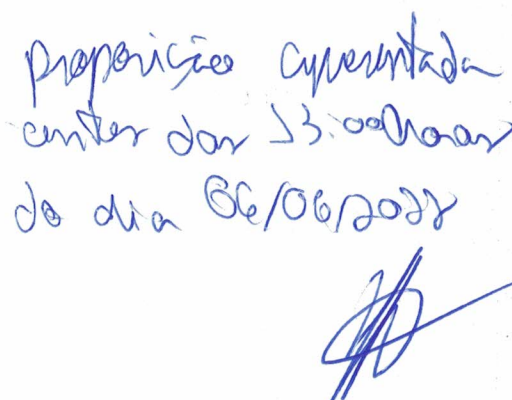 proposição apresentada
antes das 13:00horas
do dia 06/06/2022